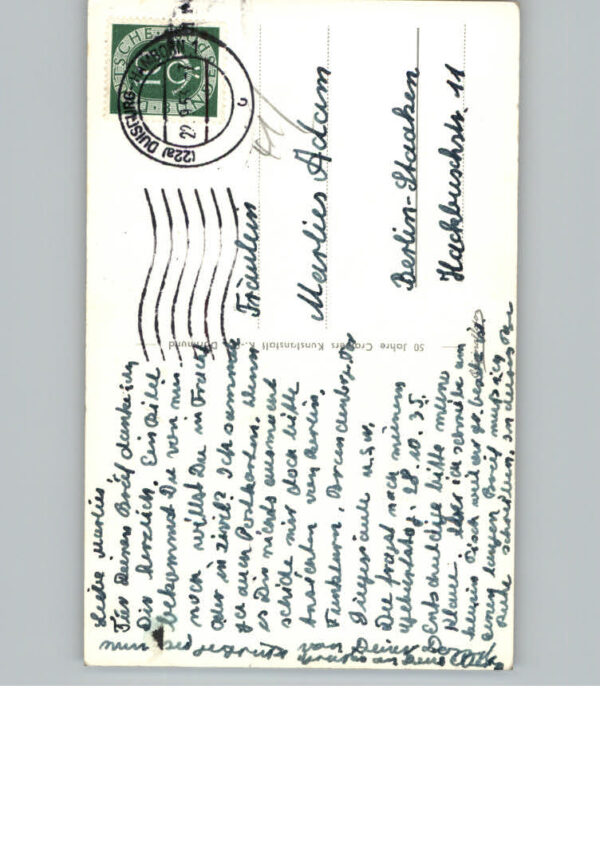 (22a) DUISBURG-HAMBORN 1
10
Fräulein
Marlies Adam
Berlin-Staaken
Hackbuschstr. 11
50 Jahre Cramers Kunstanstalt K.-G., Dortmund
Liebe Marlies!
Für Deinen Brief danke ich
Dir herzlich. Ein Bild
bekommst Du von mir
noch willst Du in
oder in zivil? Ich sammle
ja auch Postkarten. Wenn
es Dir nichts ausmacht
schicke mir doch bitte
Ansichten von Berlin,
Funkturm, Brandenburger Tor
Siegessäule u.s.w.
Du fragst nach meinem
Geburtstag: 28.10.35.
Entschuldige bitte meine
Klaue. Aber ich schreibe am
Tisch weil der gr.
einen langen Brief muß ich
noch schreiben, an
Nun sei gegrüßt von Deiner
Grüße an Deine Eltern